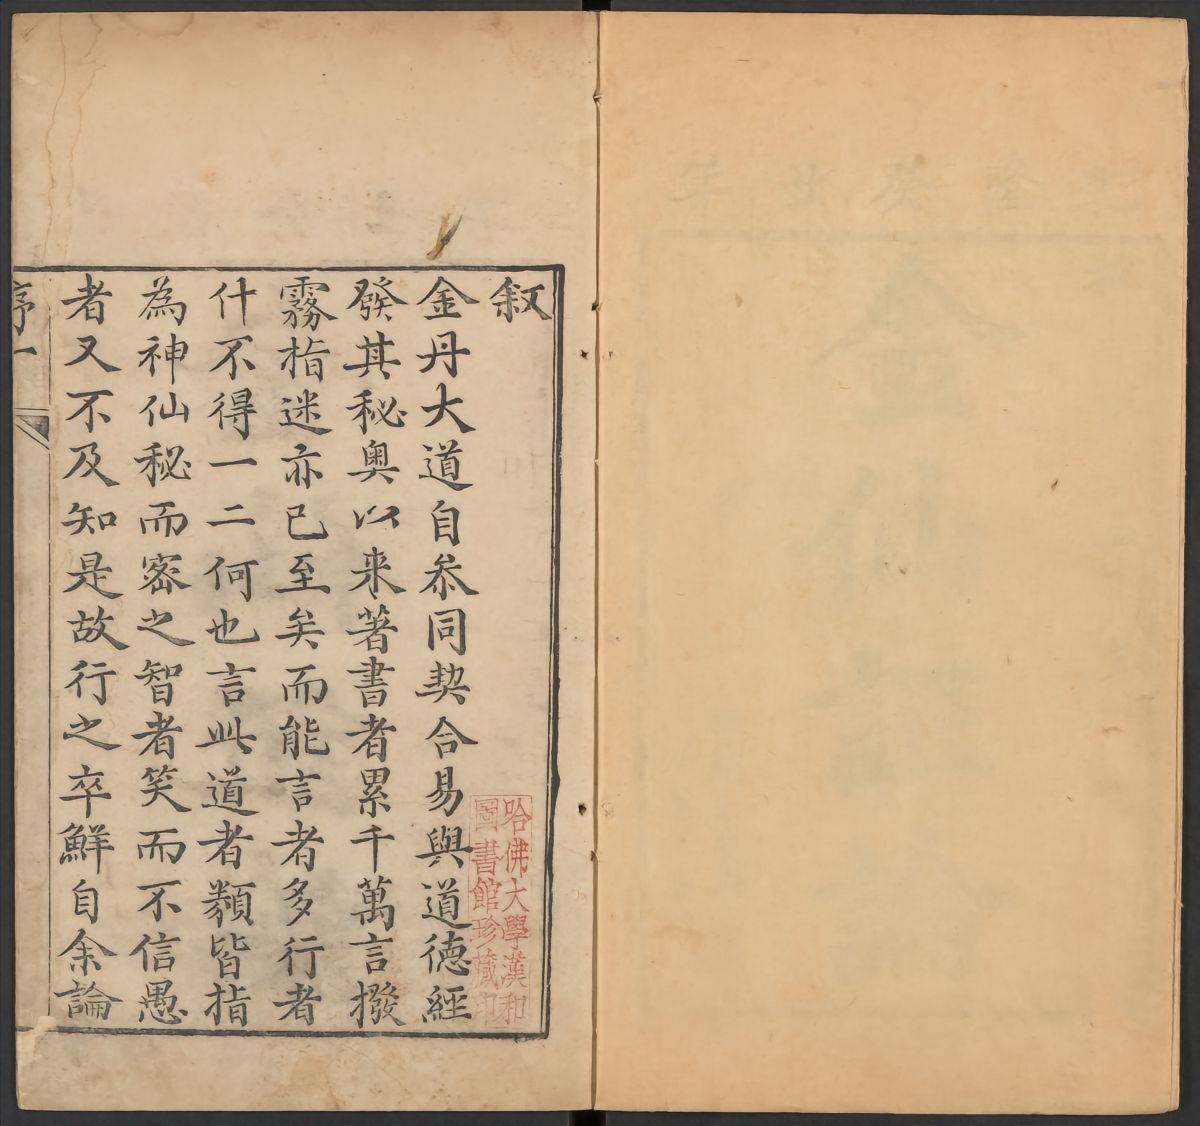 叙
金丹大道自叅同契合易與道德經
發其秘奧以来著書者累千萬言撥
霧指迷亦已至矣而能言者多行者
什不得一二何也言此道者類皆指
為神仙秘而密之智者笑而不信愚
者又不及知是故行之卒鮮自余論
序一
哈佛大學漢和
圖書館珍藏印